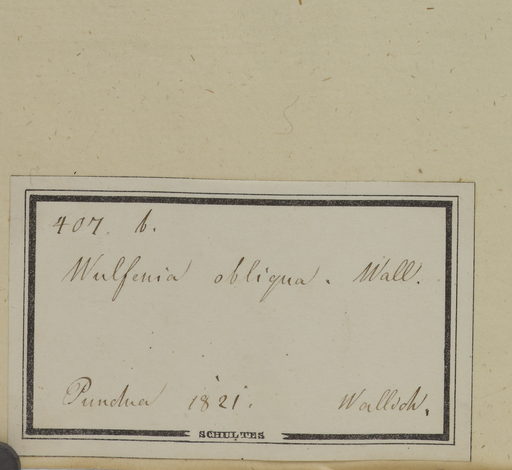 407. b.
Wulfenia obliqua. Wall.
Pundua 1821. Wallich.
SCHULTES